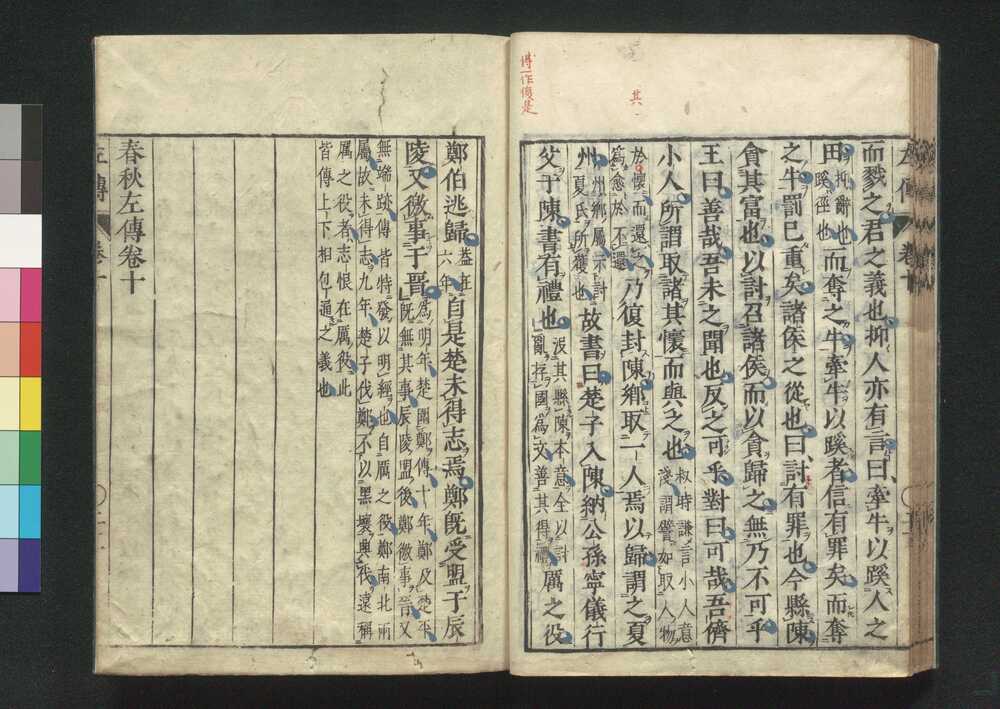 其
而戮之君之義也抑人亦有言曰牽牛以蹊人之
田抑辭也蹊徑也而奪之牛牽牛以蹊者信有罪矣而奪
之牛罰已重矣諸侯之從也曰討有罪也今縣陳
貪其富也以討召諸侯而以貪歸之無乃不可乎
王曰善哉吾未之聞也反之可乎對曰可哉吾儕
小人所謂取諸其懷而與之也叔時謙言小人意淺謂譬如取人物
於懷而還之為愈於不還乃復封陳鄉取一人焉以歸謂之夏
州州鄉屬示討夏氏所獲也故書曰楚子入陳納公孫寧儀行
父于陳書有禮也沒其縣陳本意全以討亂存國為文善其得禮厲之役
左傳 卷十
鄭伯逃歸蓋在六年自是楚未得志焉鄭既受盟于辰
陵又徼事于晉為明年楚圍鄭傳十年鄭及楚平既無其事辰陵盟後鄭徼事晉又
無端跡傳皆特發以明經也自厲之役鄭南北兩屬故未得志九年楚子伐鄭不以黑壤興伐遠稱
厲之役者志恨在厲役此皆傳上下相包通之義也
春秋左傳卷十
左傳 卷十